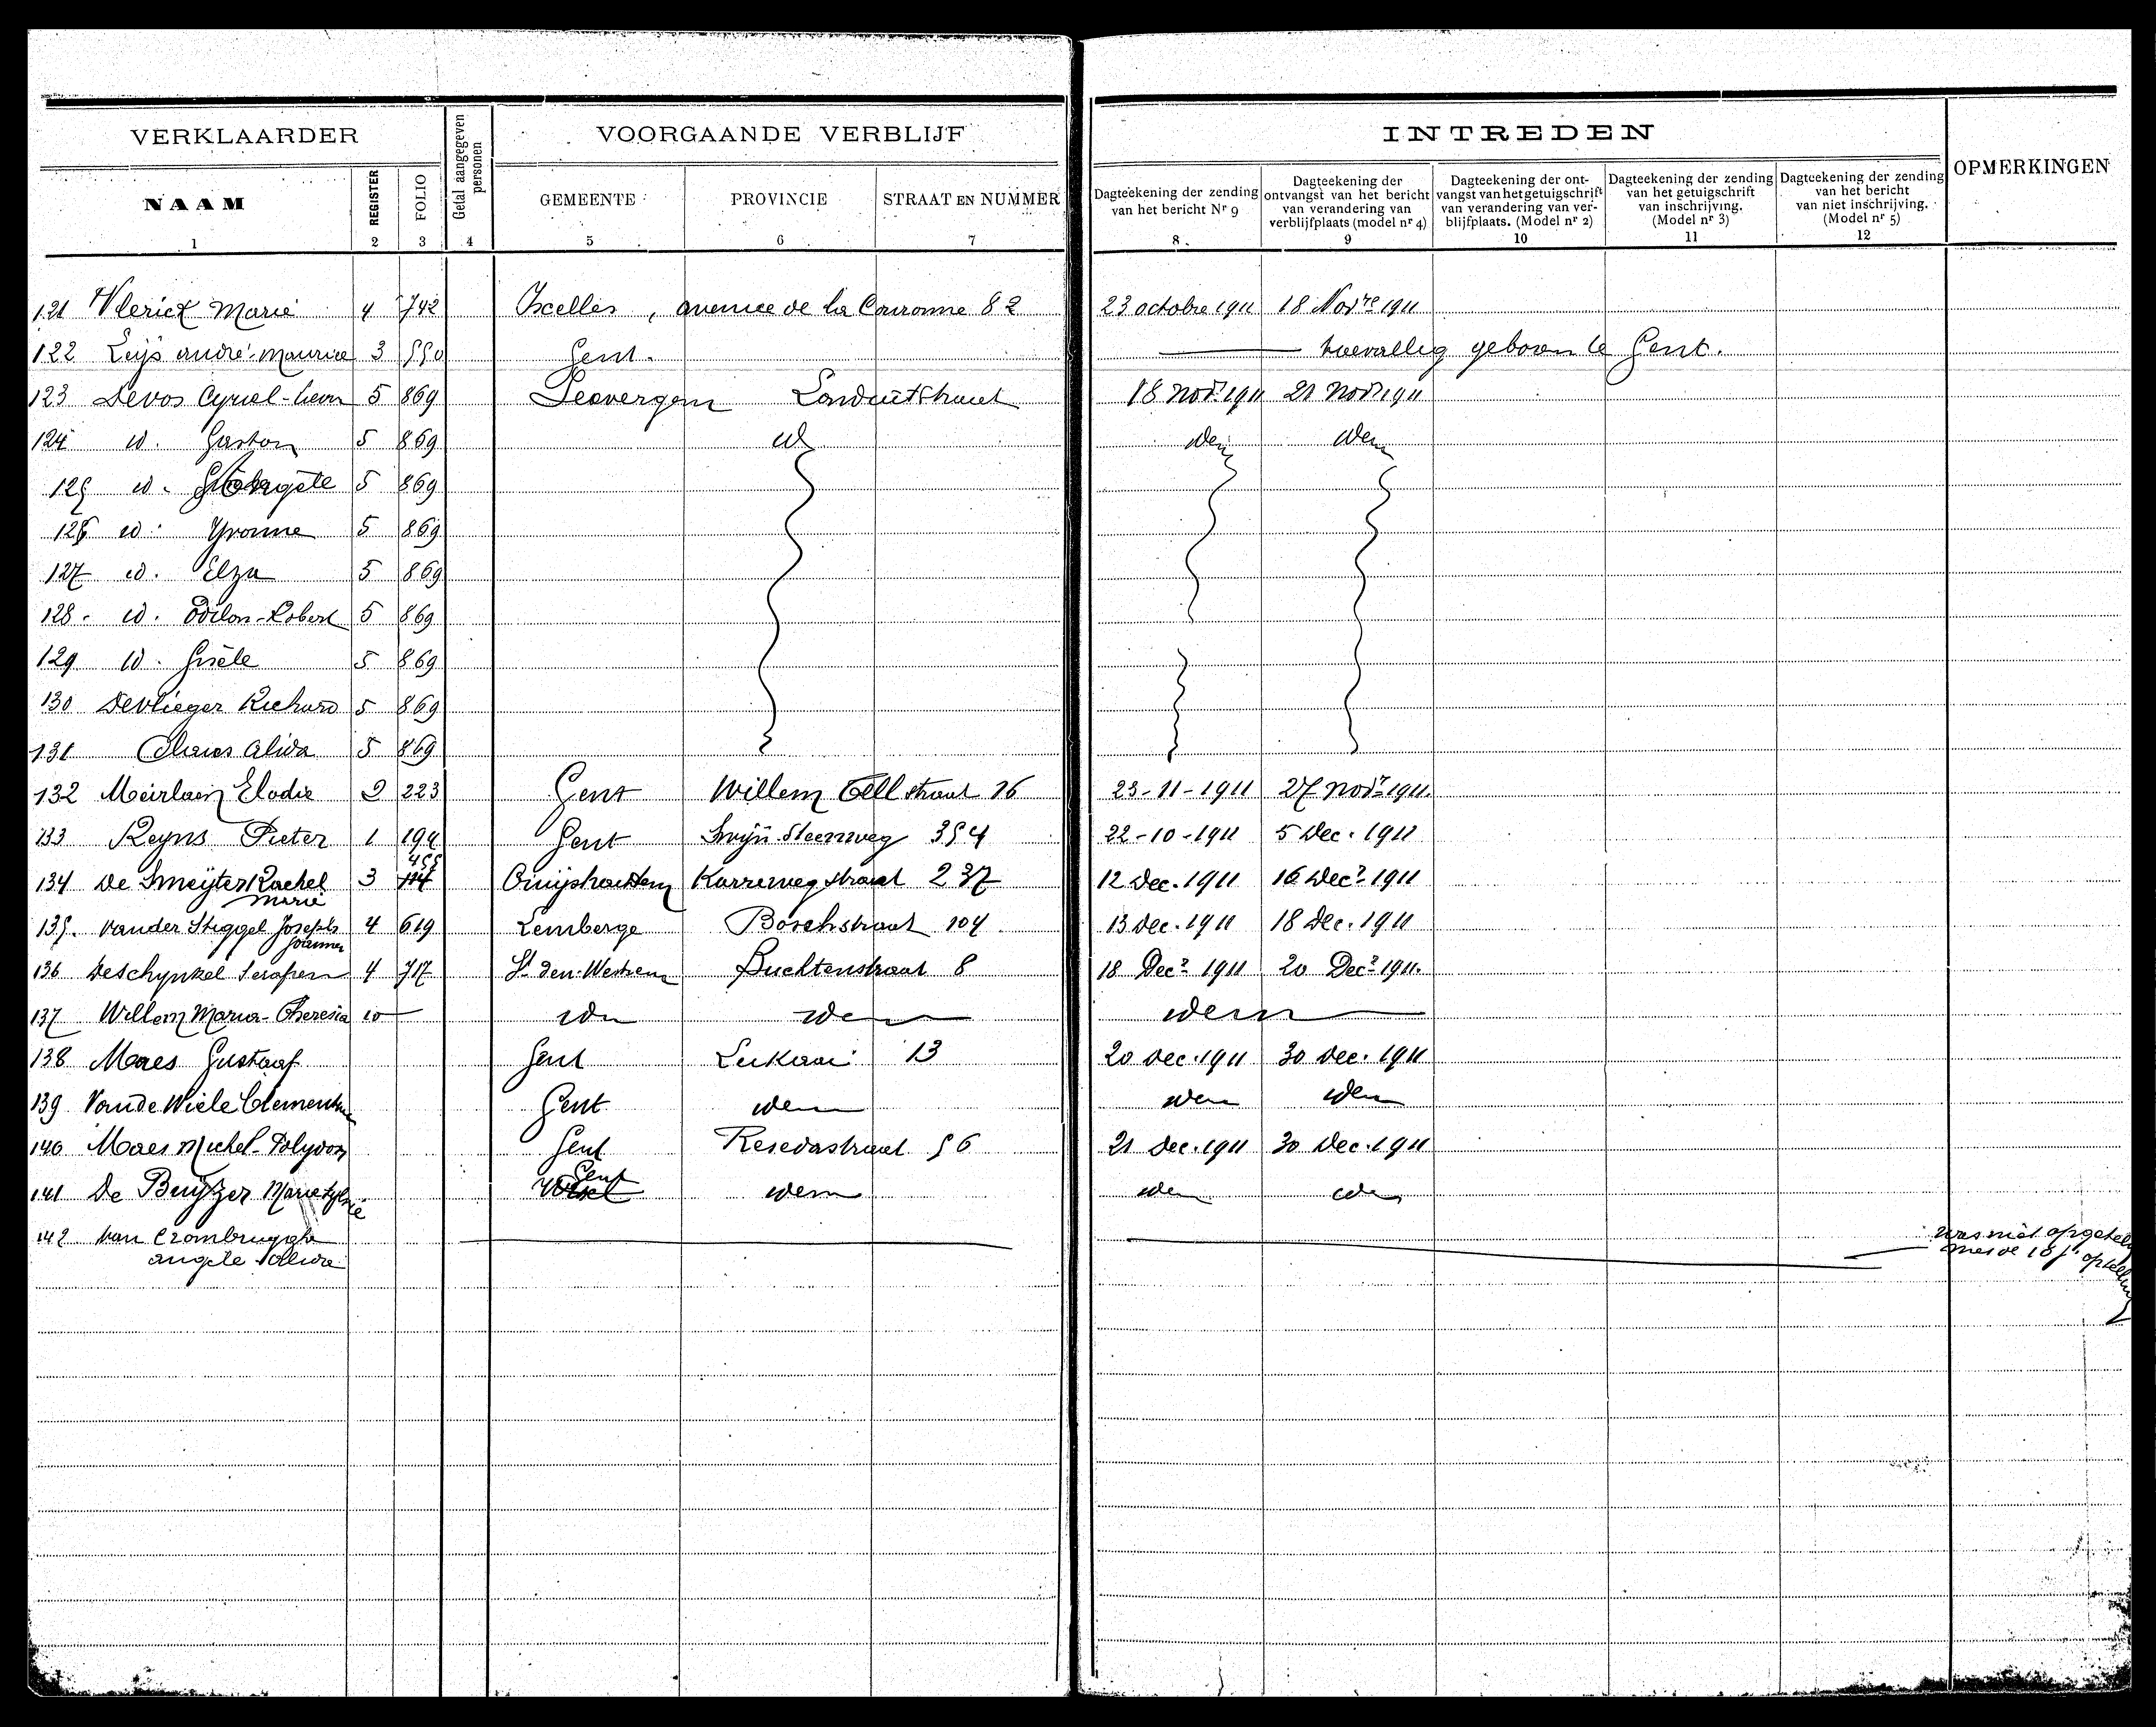 VERKLAARDER
Getal aangegeven personen
VOORGAANDE VERBLIJF
INTREDEN
OPMERKINGEN
NAAM
REGISTER
FOLIO
GEMEENTE
PROVINCIE
STRAAT EN NUMMER
Dagteekening der zending van het bericht Nr 9
Dagteekening der ontvangst van het bericht van verandering van verblijfplaats (model nr 4)
Dagteekening der ont-vangst van het getuigschrift van verandering van ver-blijfplaats. (Model nr 2)
Dagteekening der zending van het getuigschrift van inschrijving. (Model nr 3)
Dagteekening der zending van het bericht van niet inschrijving. (Model nr 5)
1 2 3 4 5 6 7 8. 9 10 11 12
121 Vlerick Marie 4 742 Ixelles, avenue de la Couronne 82 23 octobre 1911 18 Novre 1911
122 Leijs andré-maurice 3 550 Gent. toevallig geboren te Gent.
123 Devos Cyriel-Leon 5 869 18 Novr 1911 21 Novr 1911
124 id. Gaston 5 869 id idem idem
125 id. 5 869
126 id. Yvonne 5 869
127 id. Elza 5 869
128. id. Odilon-Robert 5 869
129 id. Gisèle 5 869
130 Devlieger Richard 5 869
131 Claus Alida 5 869
132 Meirlaen Elodie 2 223 Gent Willem Tell straat 26 23-11-1911 27 Novr 1911.
133 Reyns Pieter 1 194 Gent Swijn. Steenweg 354 22-10-1911 5 Dec. 1911
455
134 De Smeijter Rachel 3 Cruijshoutem Karreweg straat 237 12 Dec. 1911 16 Decr 1911
Marie
135. Vander Stiggel Joseph 4 619 Lemberge Boschstraat 104. 13 Dec. 1911 18 Dec. 1911
136 Deschynkel Serafien 4 717 St Den. Westrem Buchtenstraat 8 18 Decr 1911 20 Decr 1911.
137 Willem Maria-Theresia id idem idem idem
138 Maes Gustaaf Gent Leikaai 13 20 Dec. 1911 30 Dec. 1911
139 Van De Wiele Clementine Gent idem idem idem
140 Maes Michel-Polydoor Gent Resedastraat 56 21 Dec. 1911 30 Dec. 1911
141 De Buyzer Marie Gent idem idem idem
142 Van Crombrugghe was niet
angele Alida